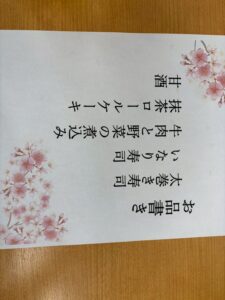 お品書き
太巻き寿司
いなり寿司
牛肉と野菜の煮込み
抹茶ロールケーキ
甘酒